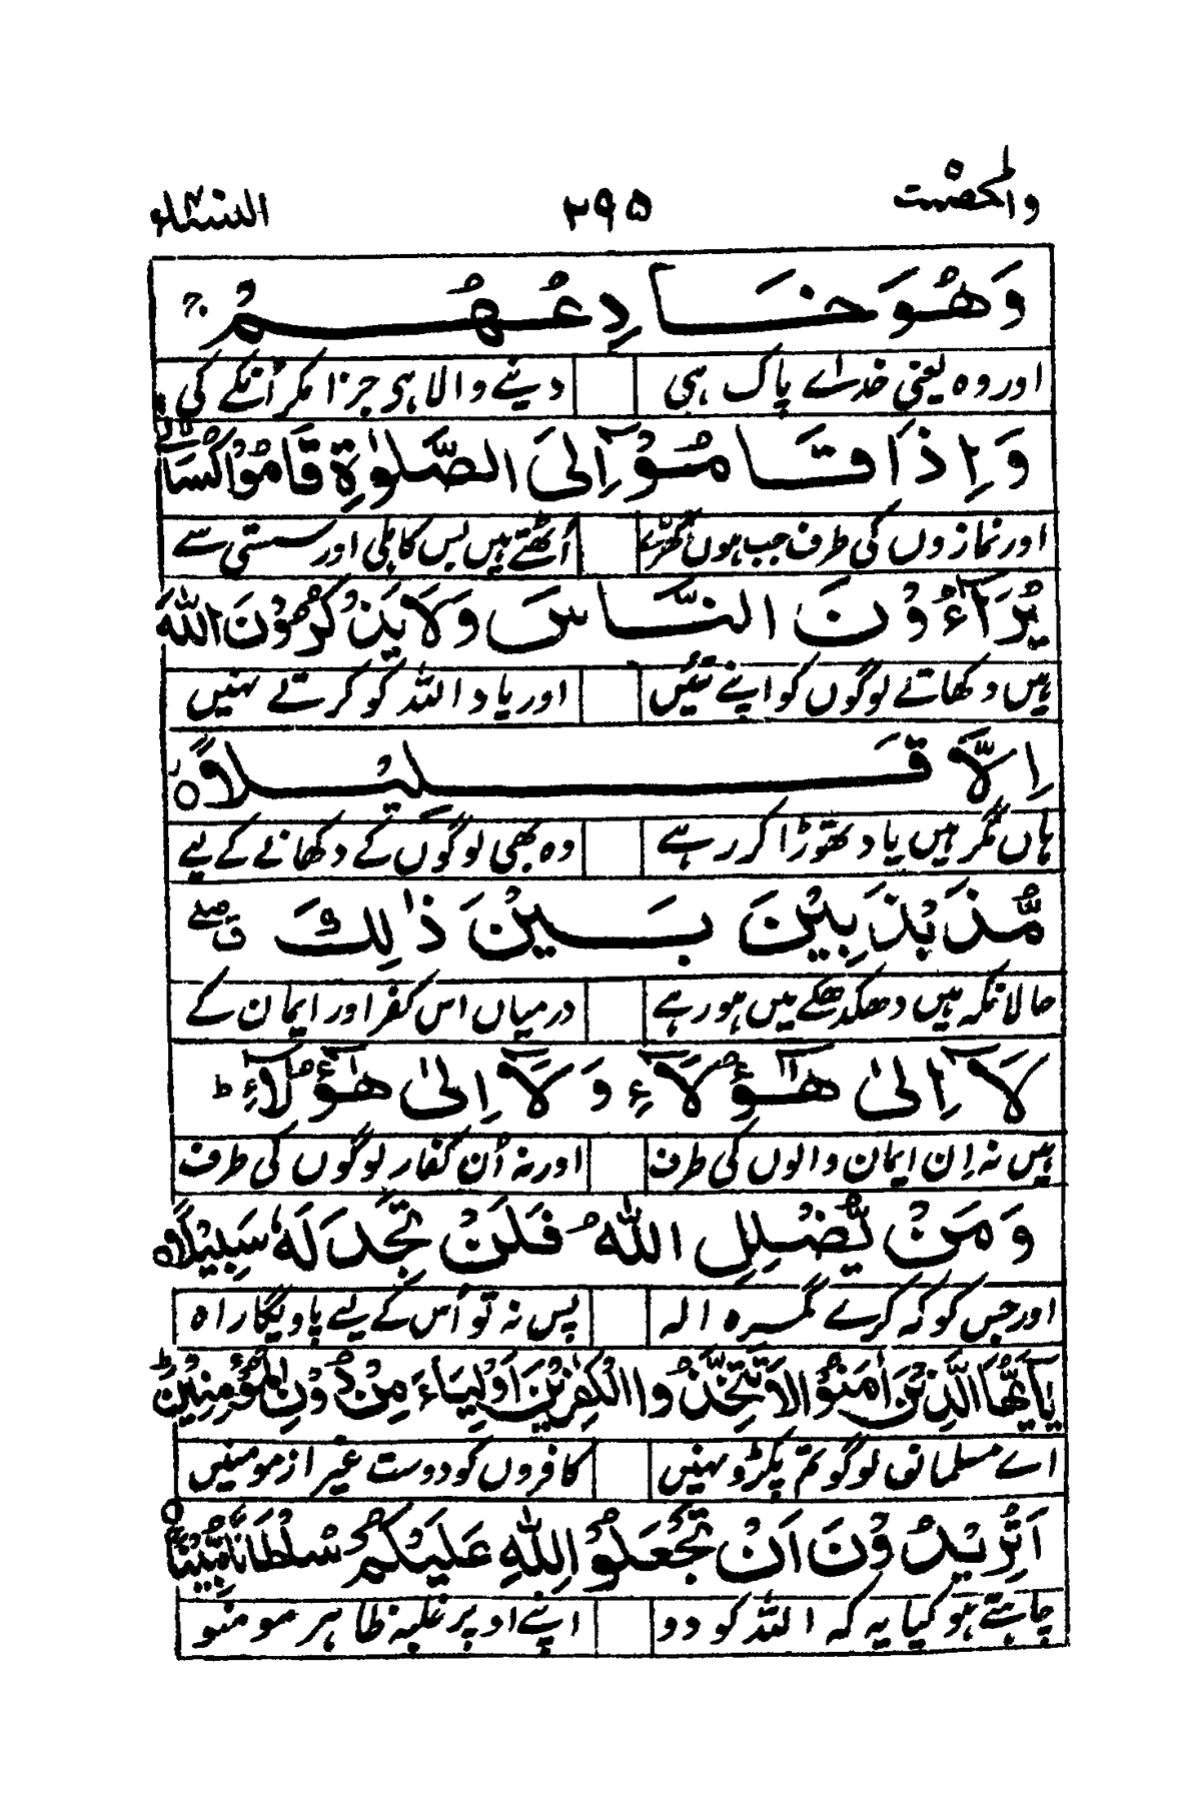 والمحصنت ۲۹۵ النسآء
وَهُوَ خَادِعُهُمْ ج
اور وہ یعنی خداے پاک ہی دینے والا ہر جزا مکر اُنکے کی
وَاِذَا قَامُوْٓا اِلَى الصَّلٰوةِ قَامُوْا كُسَالٰىۙ
اور نمازوں کی طرف جب ہوں کھڑے اُٹھتے ہیں بس کاہلی اور سستی سے
يُرَآءُوْنَ النَّاسَ وَلَا يَذْكُرُوْنَ اللّٰهَ
ہیں دکھاتے لوگوں کو اپنے تئیں اور یاد اللہ کو کرتے نہیں
اِلَّا قَلِيْلًا ۙ
ہاں مگر ہیں یاد تھوڑا کر رہے وہ بھی لوگوں کے دکھانے کے لیے
مُّذَبْذَبِيْنَ بَيْنَ ذٰلِكَ ق صلے
حالانکہ ہیں دھکدھکے میں ہو رہے درمیاں اس کفر اور ایمان کے
لَآ اِلٰى هٰٓؤُلَآءِ وَلَآ اِلٰى هٰٓؤُلَآءِ ط
ہیں نہ اِن ایمان والوں کی طرف اور نہ اُن کفار لوگوں کی طرف
وَمَنْ يُّضْلِلِ اللّٰهُ فَلَنْ تَجِدَ لَهٗ سَبِيْلًا ۝
اور جس کو کہ کرے گمرہ الہ پس نہ تو اُس کے لیے پاویگا راہ
يٰٓاَيُّهَا الَّذِيْنَ اٰمَنُوْا لَا تَتَّخِذُوا الْكٰفِرِيْنَ اَوْلِيَآءَ مِنْ دُوْنِ الْمُؤْمِنِيْنَ ط
اے مسلمانو لوگو تم پکڑو نہیں کافروں کو دوست غیر از مومنیں
اَتُرِيْدُوْنَ اَنْ تَجْعَلُوْا لِلّٰهِ عَلَيْكُمْ سُلْطَانًا مُّبِيْنًا ۝
چاہتے ہو کیا یہ کہ اللہ کو دو اپنے اوپر غلبہ ظاہر مومنو